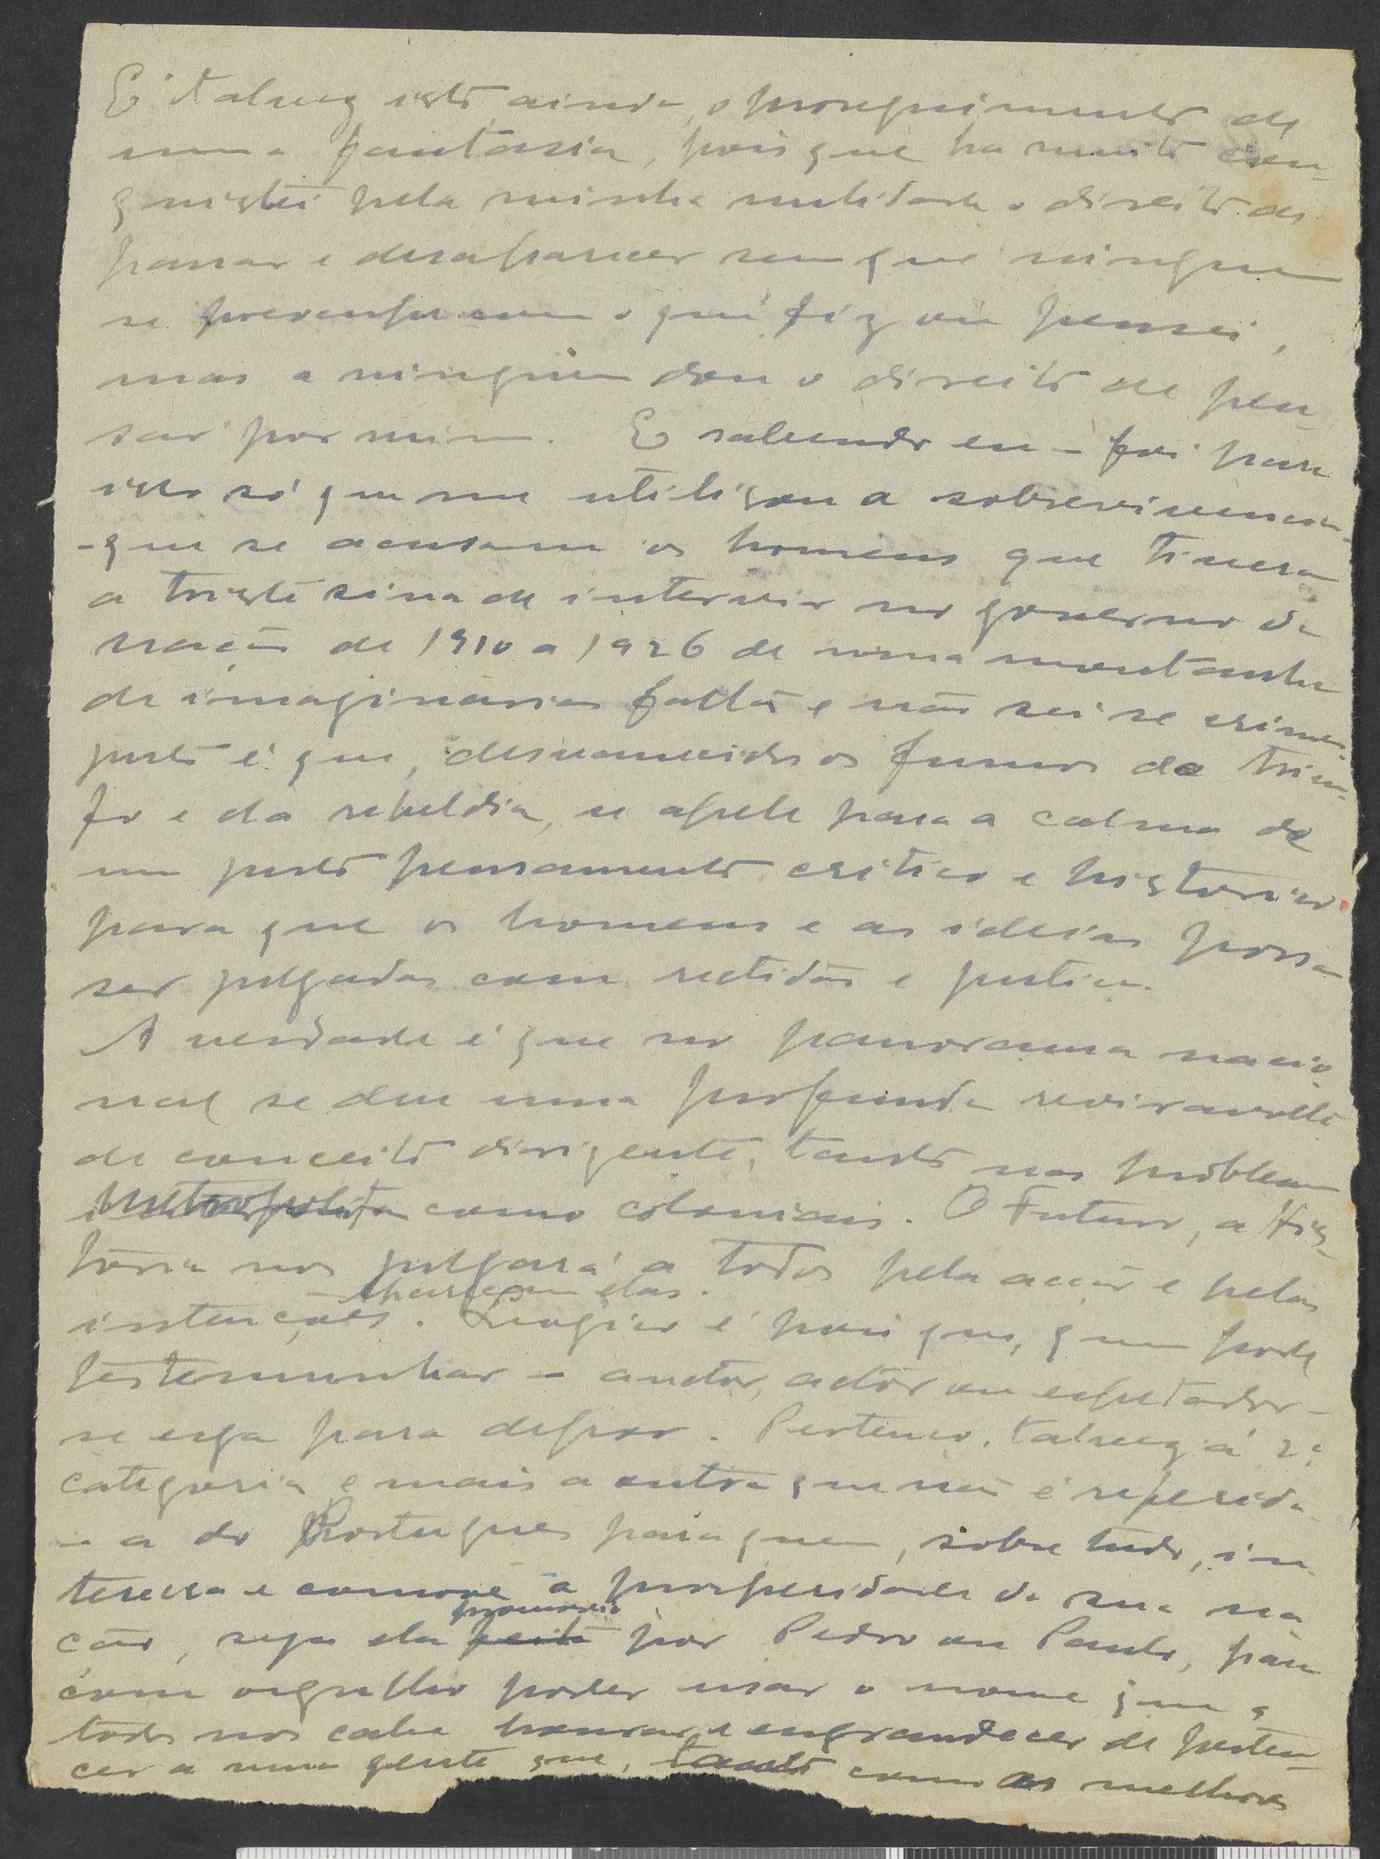 E' talvez isto, ainda, o proseguimento de
uma fantasia, pois que ha muito con-
quistei pela minha nulidade o direito de
passar e desaparecer sem que ninguem
se preocupe com o que fiz ou pensei,
mas a ninguem dou o direito de pen-
sar por mim. E sabendo eu – foi para
isto só que me utilizou a sobrevivencia
- que se acusam os homens que tiveram
a triste sina de intervir no governo da
nação de 1910 a 1926 de uma montanha
de imaginarias faltas e não sei se crimes
justo é que, desvanecidos os fumos do triun-
fo e da rebeldia, se apele para a calma de
um justo pensamento critico e historico
para que os homens e as ideias possam
ser julgadas com rectidão e justiça.
A verdade é que no panorama nacio
nal se deu uma profunda reviravolta
de conceito dirigente, tanto nos problemas
como coloniais. O Futuro, a His-
tória nos julgará a todos pela acção e pelas
elas.
intenções. Logico é pois que, quem pode
testemunhar – auctor, actor ou espetador –
se erga para depor. Pertenco, talvez á 2ª
categoria e mais a outra que não é referida
– a do Portugues para quem, sobre tudo, in
teressa e comove a prosperidade da sua na
promovida
ção, seja ela feita por Pedro ou Paulo, para
com orgulho poder usar o nome que a
todos nos cabe honrar e engrandecer de perten-
cer a uma gente que, tanto como as melhores